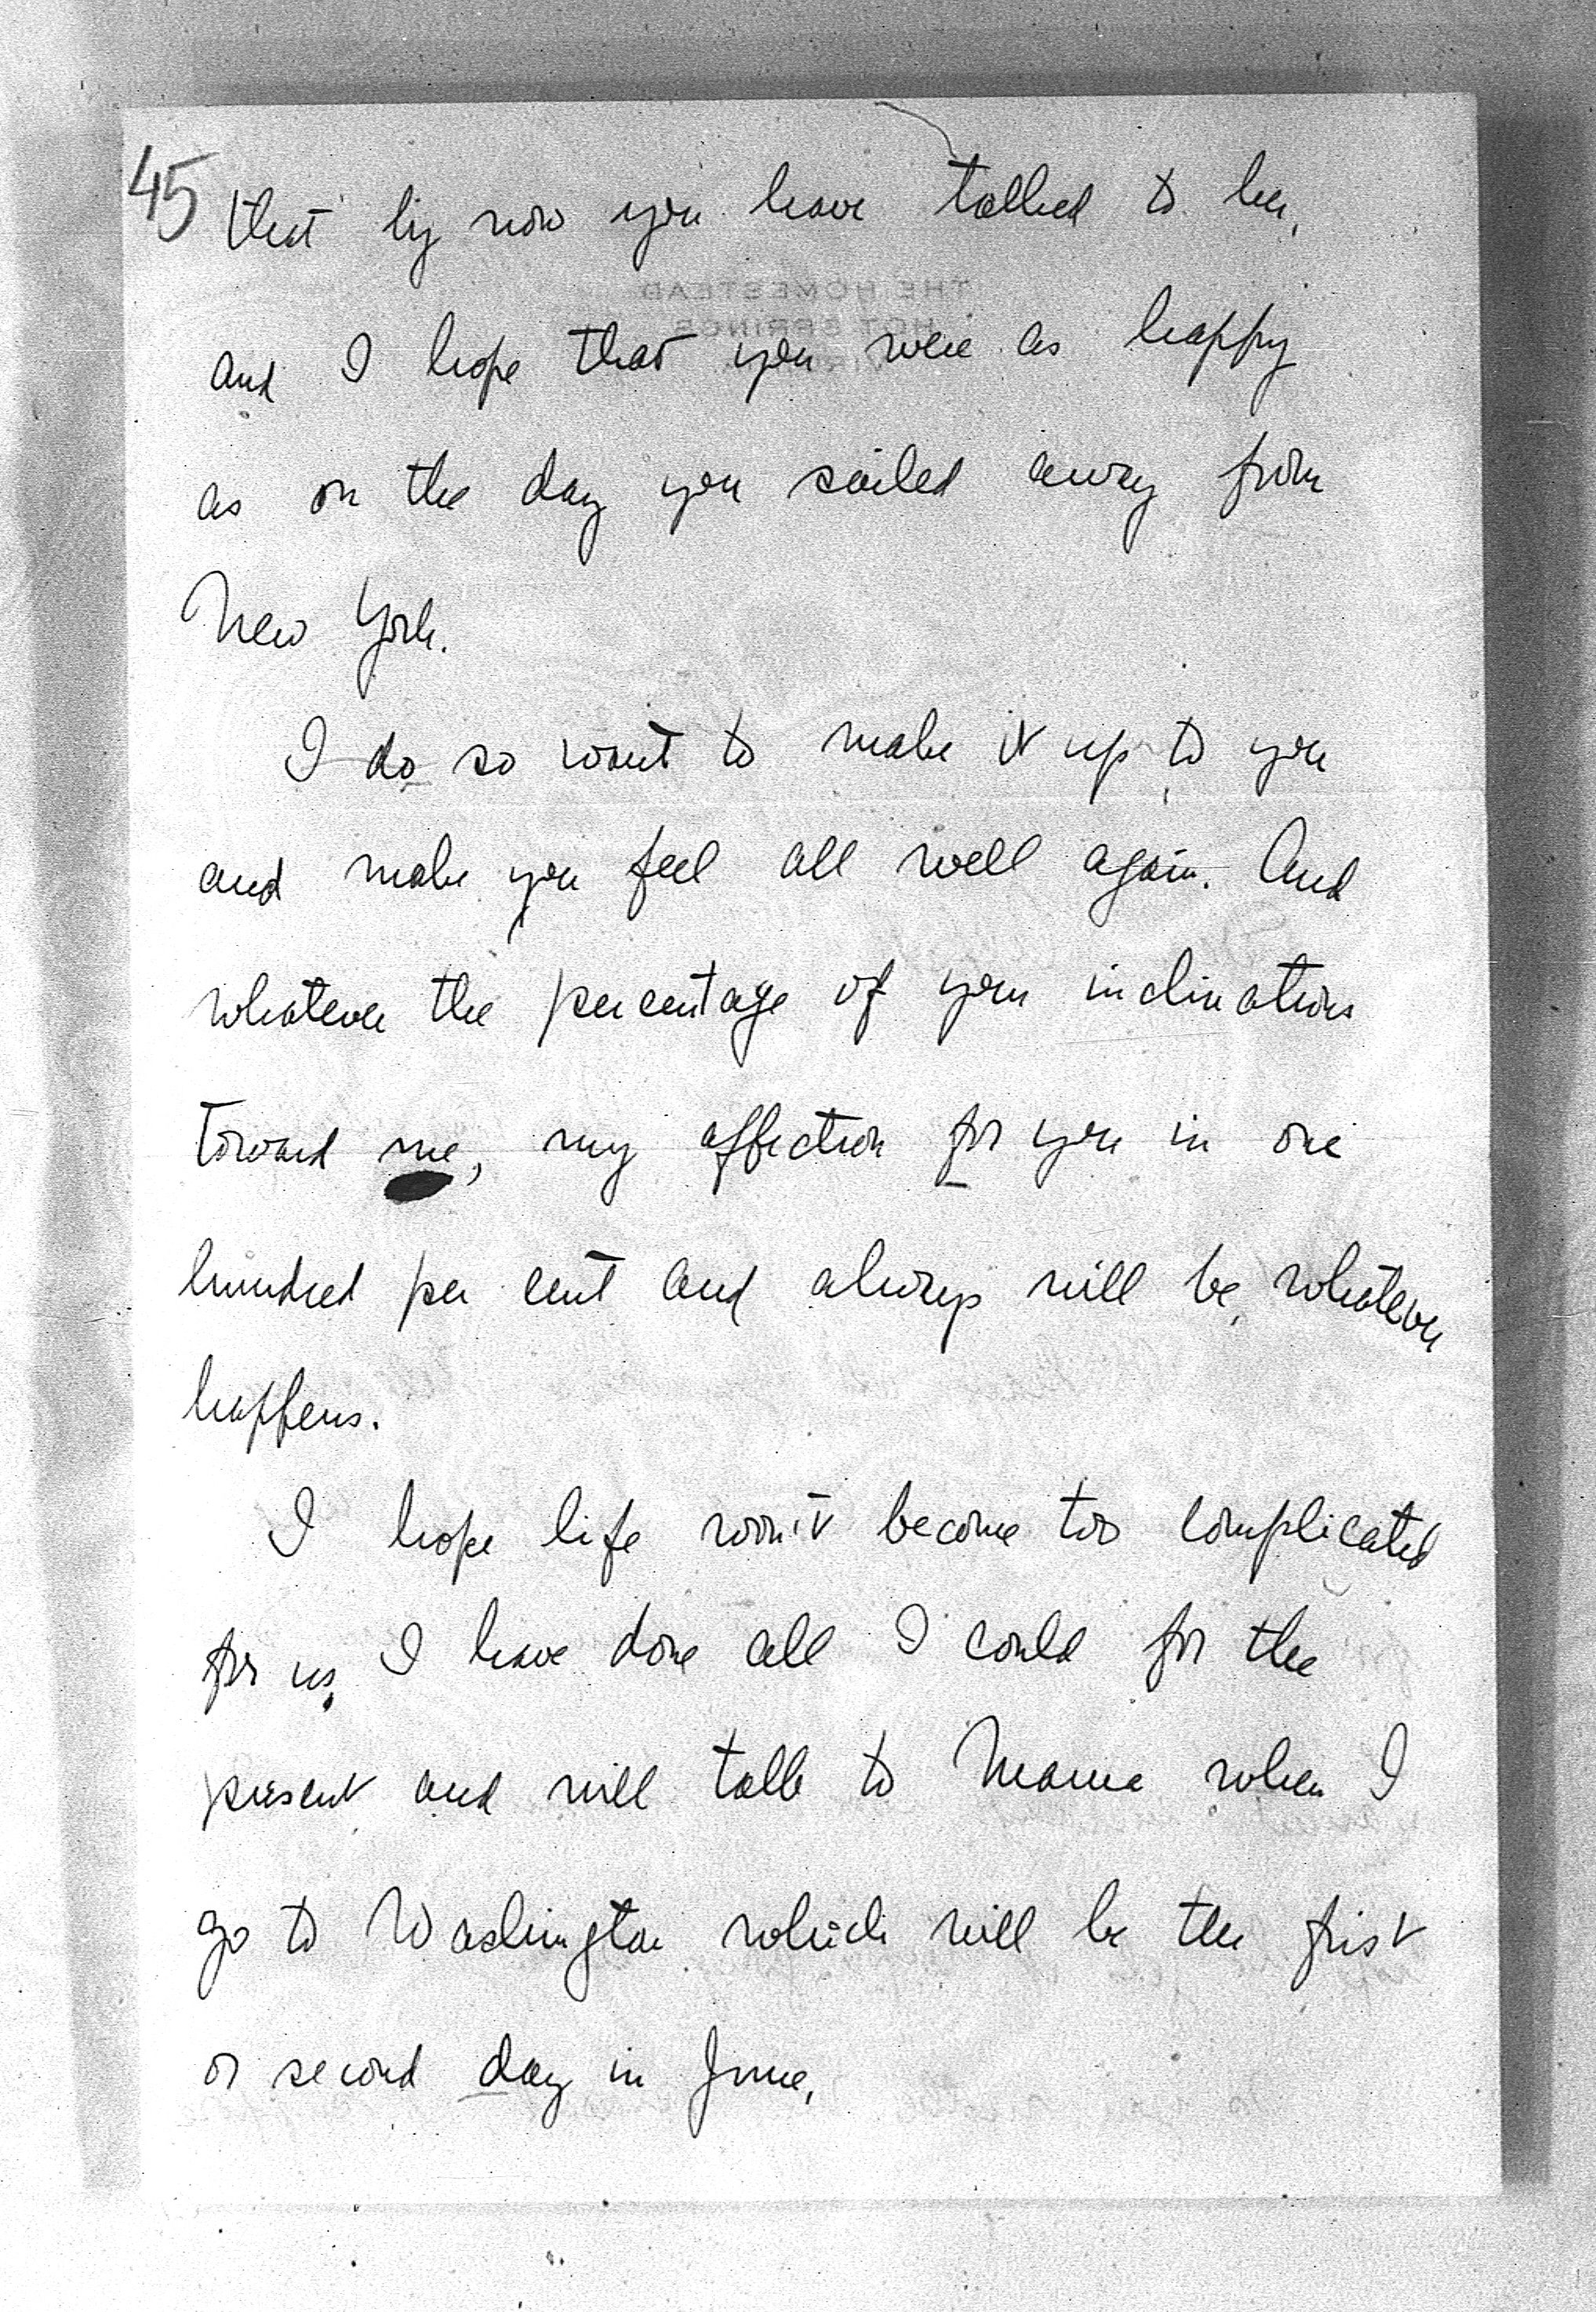 45
that by now you have talked to her,
and I hope that you were as happy
as on the day you sailed away from
New York.
I do so want to make it up to you
and make you feel all well again. And
whatever the percentage of your inclinations
toward me, my affection for you in one
hundred per cent and always will be, whatever
happens.
I hope life won't become too complicated
for us, I have done all I could for the
present and will talk to Mama when I
go to Washington which will be the first
or second day in June,
THE HOMESTEAD
HOT SPRINGS